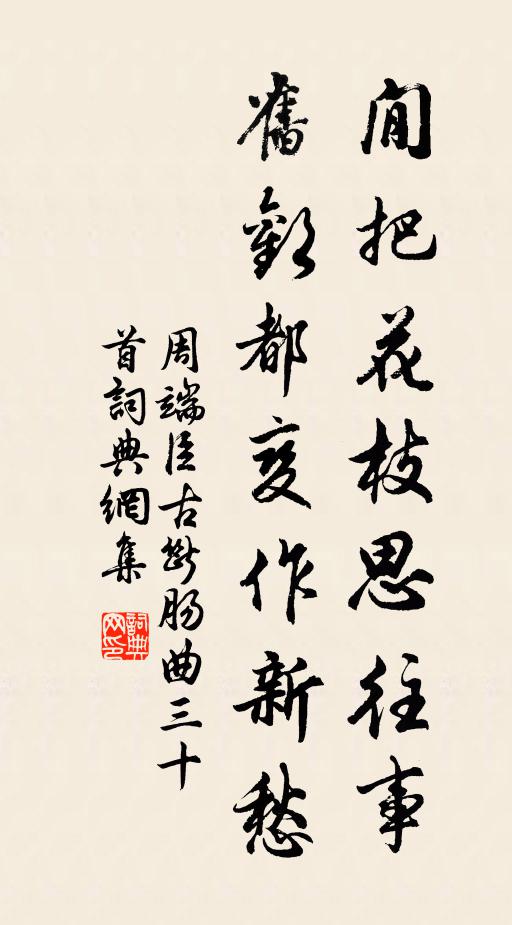 閒把花枝思往事
舊歡都变作新愁
周端臣古斷肠曲三十
首詞典網集
詞典网印